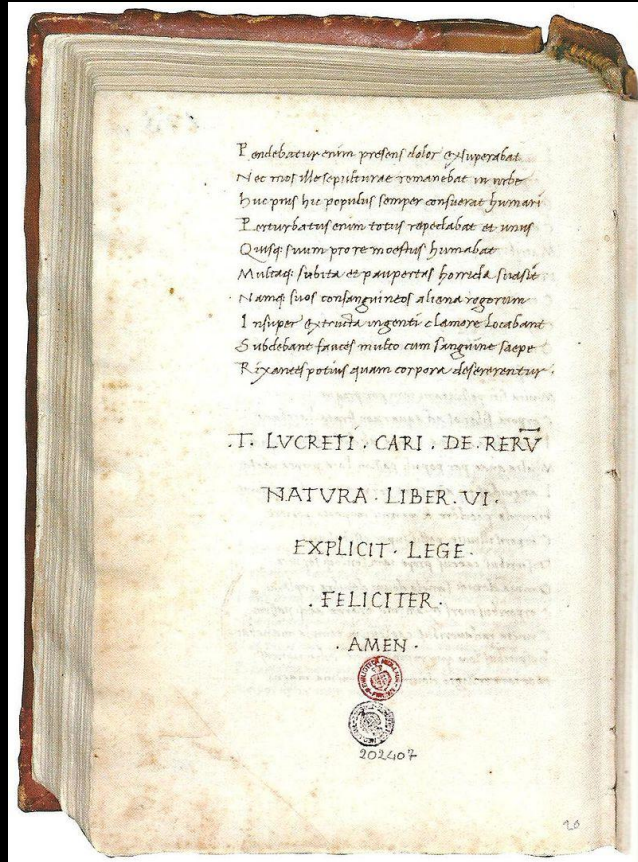 Pendebatur enim presens dolor exsuperabat
Nec mos ille sepulturae remanebat in urbe
huc prius hic populus semper consuerat humari
Perturbatus enim totus repedabat et unus
Quisq; suum pro re moestus humabat
Multaq; subita et paupertas horrida suasit
Namq; suos consanguineos aliena rogorum
Insuper extructa ingenti clamore Locabant
Subdebant fauces multo cum sanguine saepe
Rixantes potius quam corpora desererentur.
.T. LVCRETI . CARI . DE . RERV̄
NATVRA . LIBER . VI .
EXPLICIT . LEGE .
. FELICITER .
. AMEN .
202407